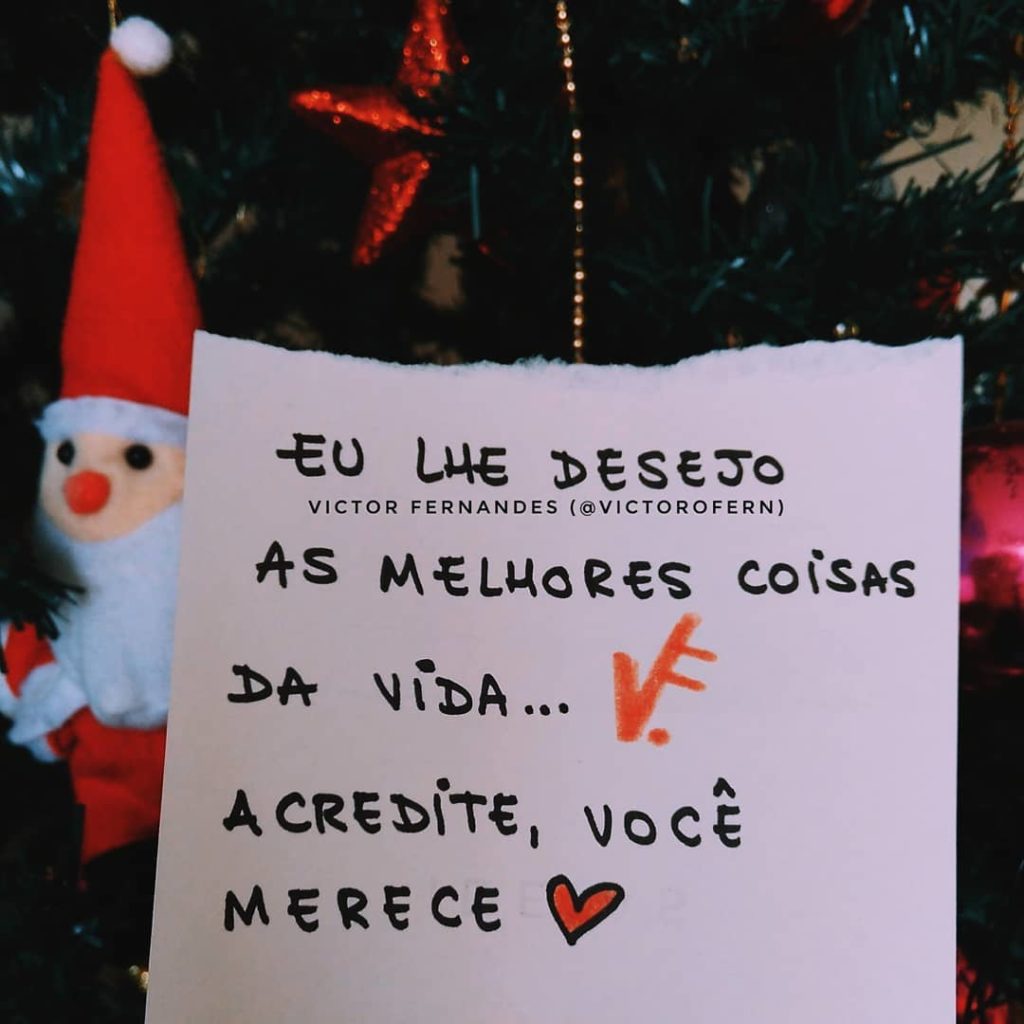 EU LHE DESEJO
VICTOR FERNANDES (@VICTOROFERN)
AS MELHORES COISAS
DA VIDA...
VF.
ACREDITE, VOCÊ
MERECE